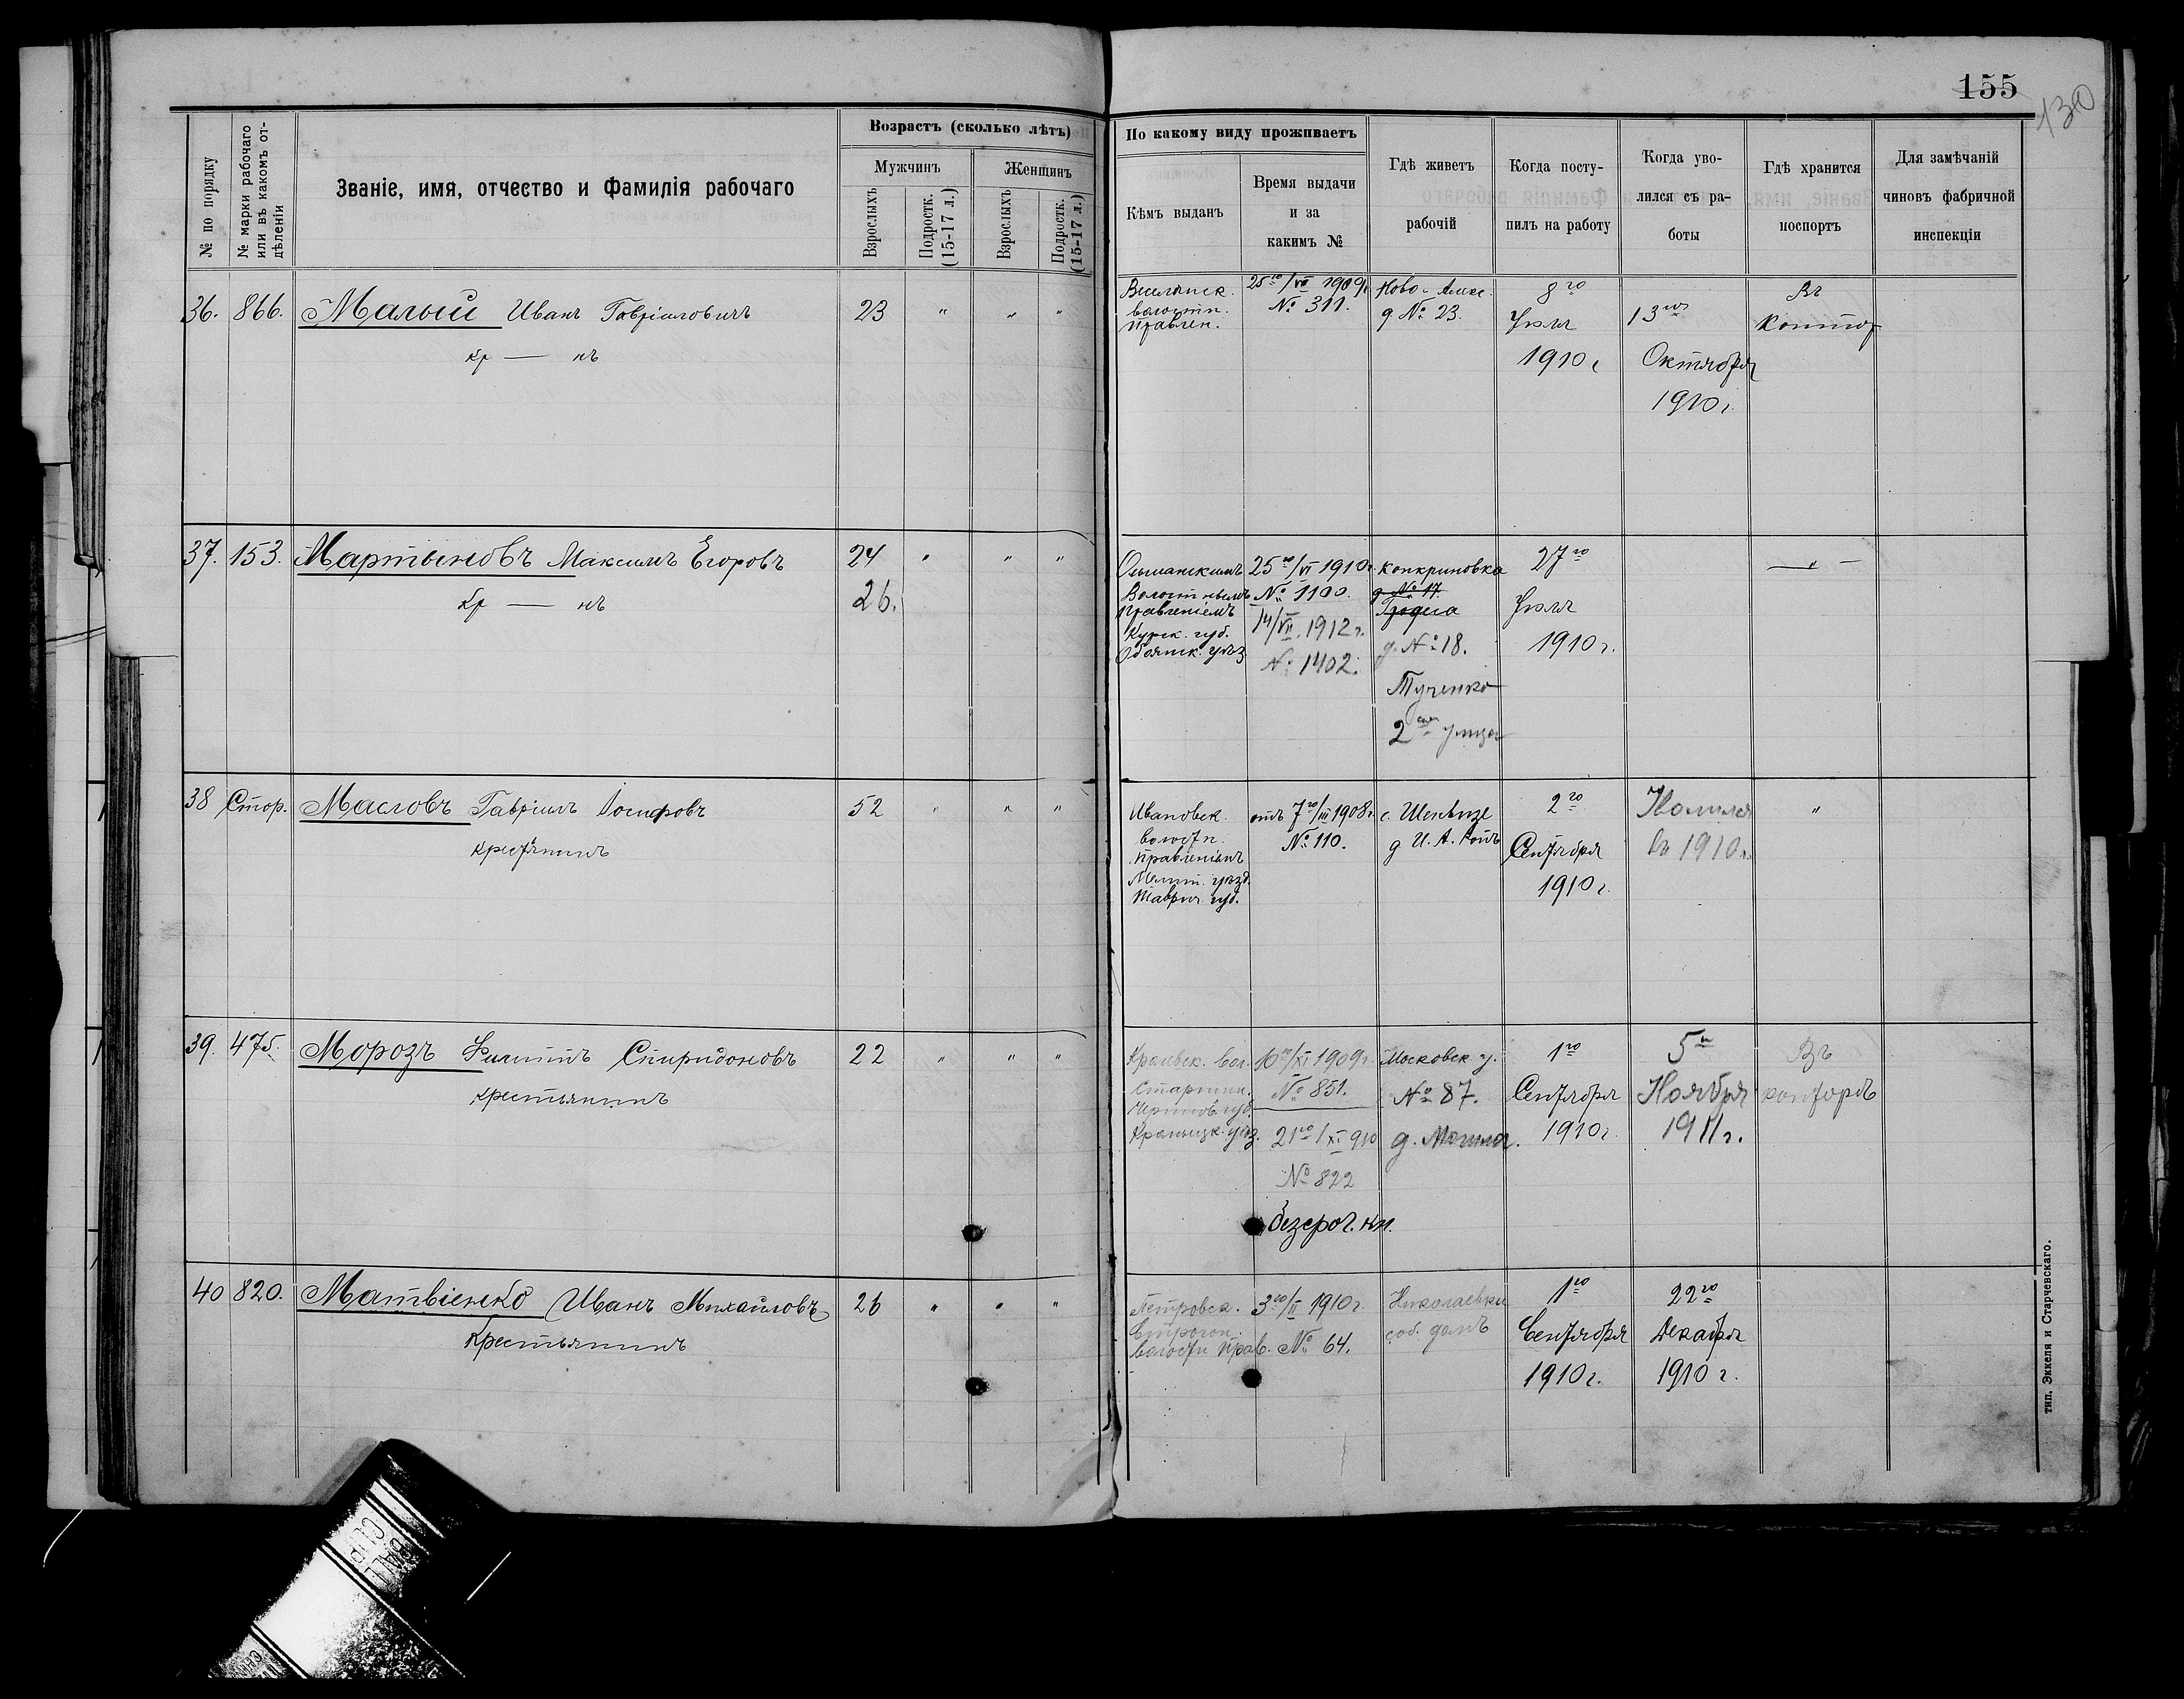 155
130
№ по порядку
№ марки рабочаго или въ какомъ отдѣленіи
Званіе, имя, отчество и фамилія рабочаго
Возрастъ (сколько лѣтъ)
Мужчинъ
Женщинъ
Взрослыхъ
Подростк. (15-17 л.)
Взрослыхъ
Подростк. (15-17 л.)
По какому виду проживаетъ
Кѣмъ выданъ
Время выдачи
и за
какимъ №
Гдѣ живетъ
рабочій
Когда посту-
пилъ на работу
Когда уво-
лился съ ра-
боты
Гдѣ хранится
поспортъ
Для замѣчаній
чиновъ фабричной
инспекціи
36. 866. Малый Иванъ Гавріиловичъ 23 " " "
кр — нъ
волостн.
правлен.
25го/VII 1909г.
№ 311.
Ново-Алекс.
д № 23.
8го
Іюля
1910г
13го
Октября
1910г.
Въ
контор
37. 153. Мартыновъ Максимъ Егоровъ 24 " " "
кр — нъ 26.
Волостнымъ
Правленіемъ
Курск. губ.
Обоянск. уѣз
25го/VI 1910г.
№ 1100.
14/VII. 1912г.
№ 1402.
Конкриновка
д № 17.
д. № 18.
Тученко
2ая улица
27го
Іюля
1910г.
— " —
38 Стор. Масловъ Гавріилъ Іосифовъ 52 " " "
крестьянинъ
Ивановск.
волостн.
Правленіемъ
Мелит. уѣзд.
Таврич. губ.
отъ 7го/III 1908г.
№ 110.
д И. А.
2го
Сентября
1910г.
въ 1910г.
"
39. 475. Морозъ Филиппъ Спиридоновъ 22 " " "
крестьянинъ
Старшин.
Чернигов. губ.
10го/XI 1909г.
№ 851.
21го/XI 910
№ 822
безсроч. кн.
Московск у.
№ 87.
1го
Сентября
1910г.
5го
Ноября
1911г.
Въ
конторѣ
40 820. Матвіенко Иванъ Михайловъ 26 " " "
Крестьянинъ
Петровск.
Волостн Прав.
3го/II 1910г.
№ 64.
Николаевки
соб. домъ
1го
Сентября
1910г.
22го
Декабря
1910г.
тип. Эккеля и Старчевскаго.